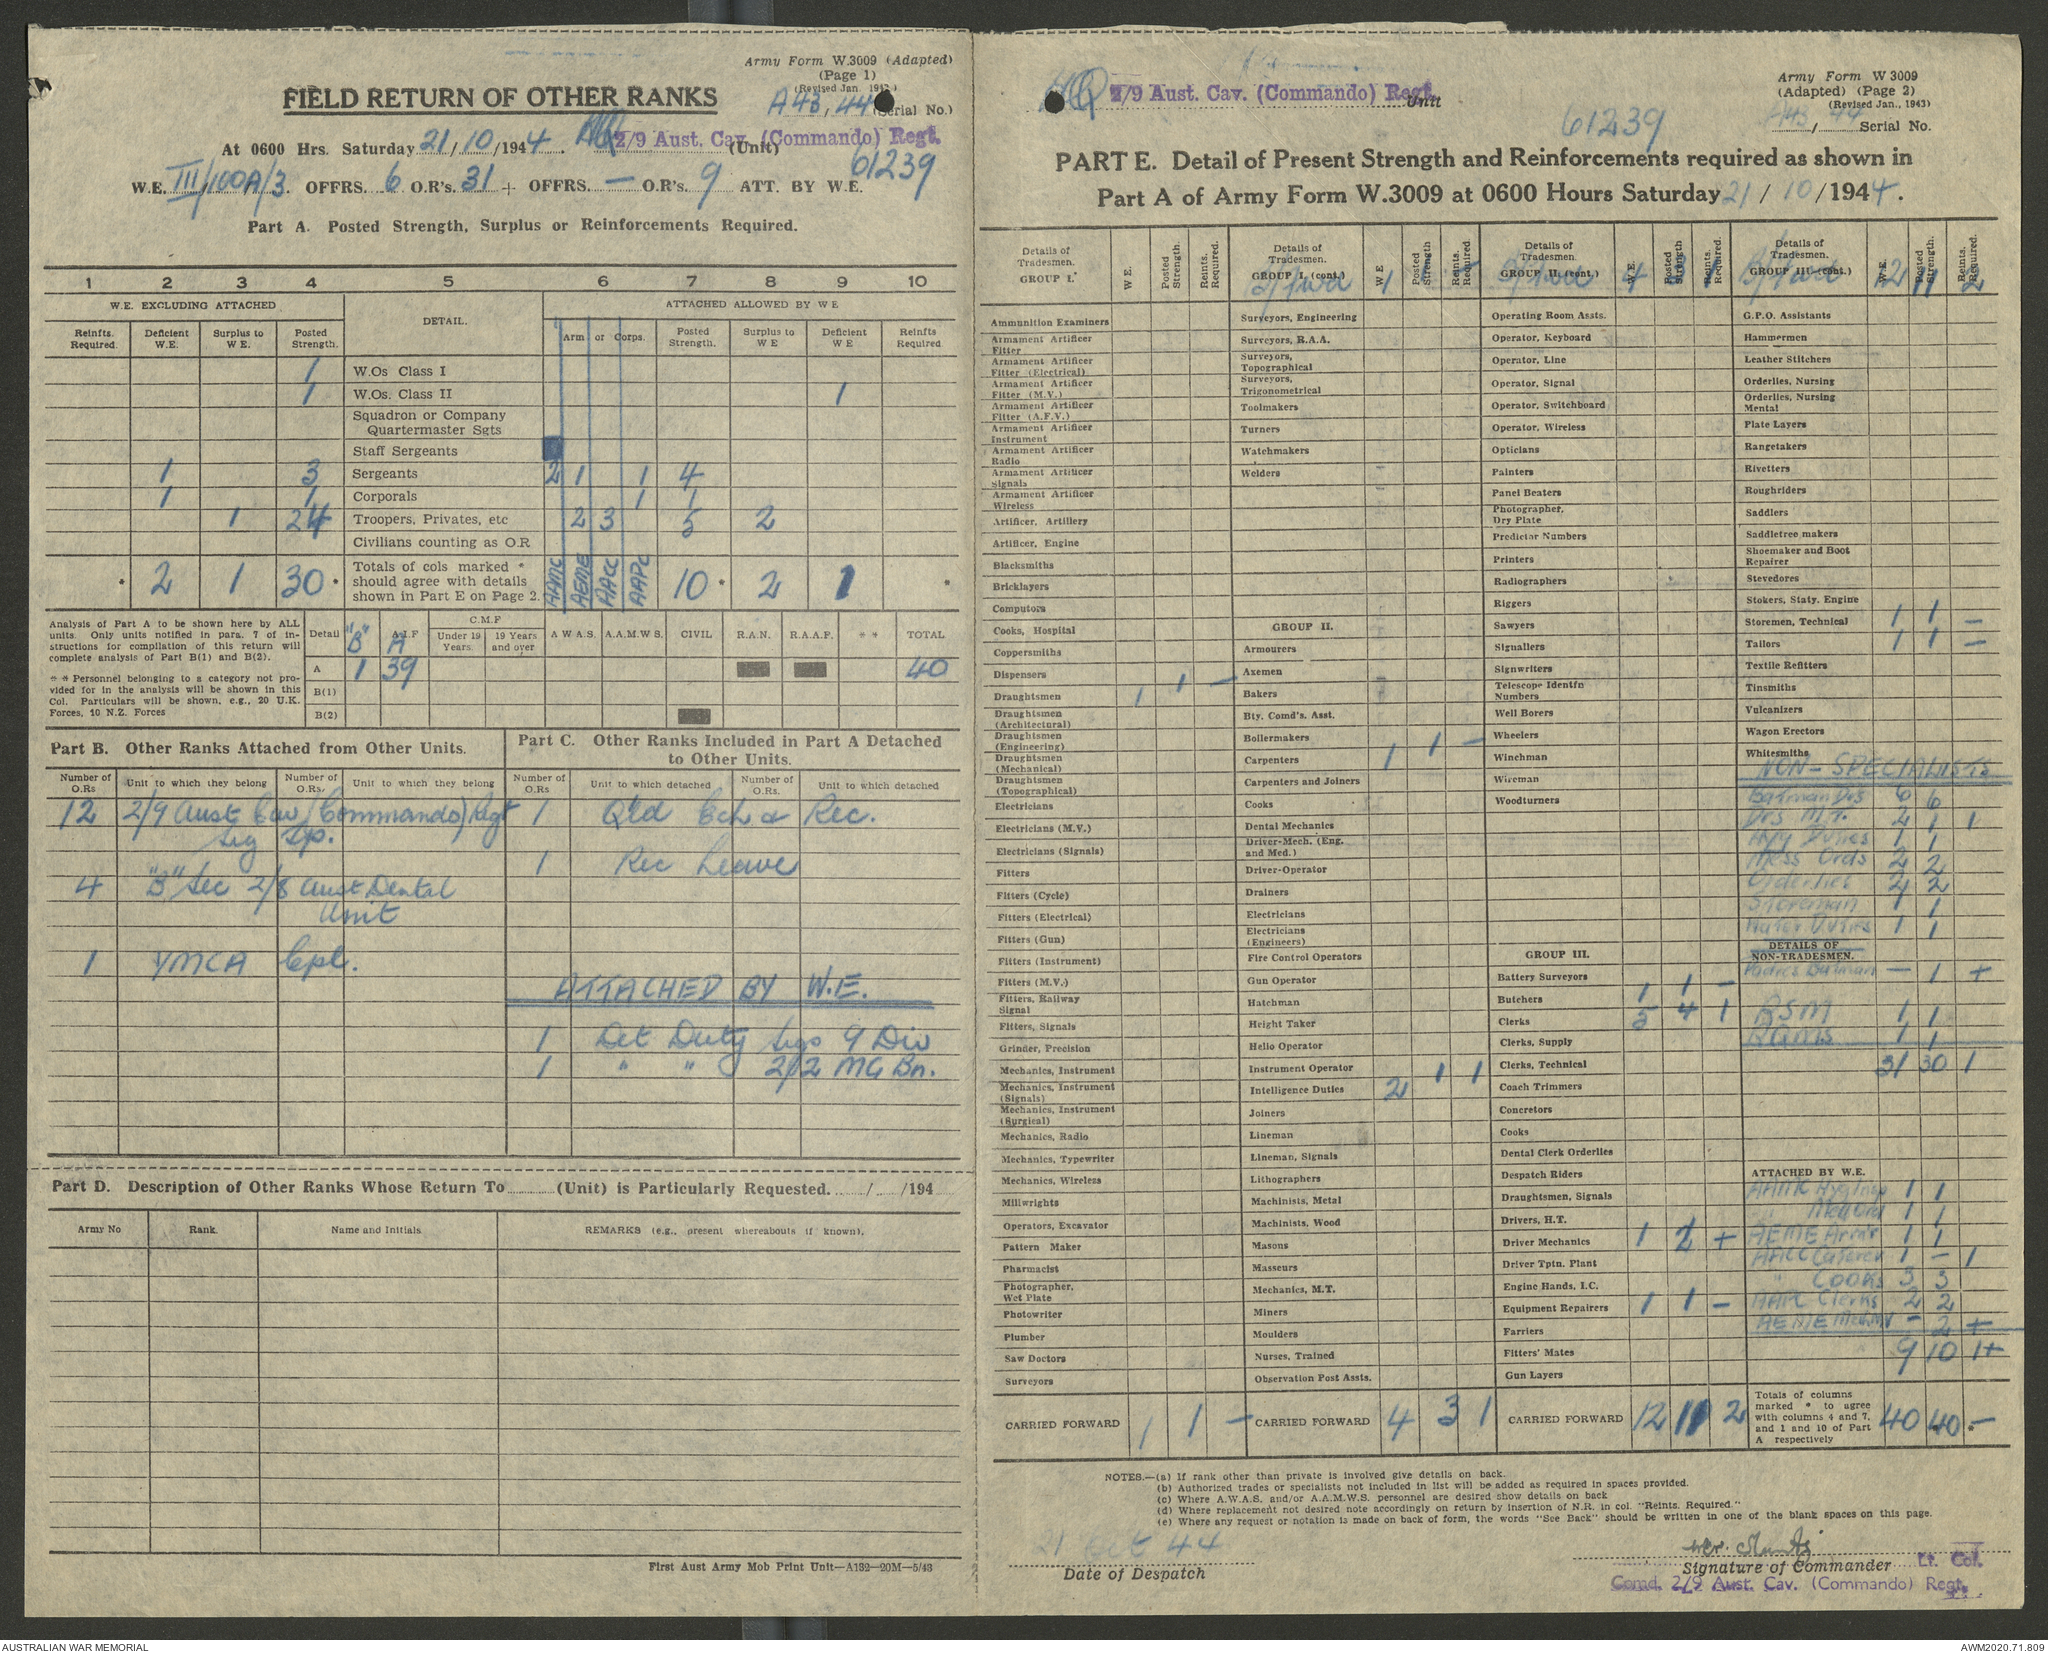 Army Form W.3009 (Adapted)
(Page 1)
(Revised Jan. 1943)
FIELD RETURN OF OTHER RANKS
A43, 44 (Serial No.)
At 0600 Hrs. Saturday 21/10/1944. HQ 2/9 Aust. Cav. (Commando) Regt. (Unit)
61239
W.E. III/100A/3. OFFRS. 6 O.R's. 31 + OFFRS. — O.R's. 9 ATT. BY W.E.
Part A. Posted Strength, Surplus or Reinforcements Required.
1 2 3 4 5 6 7 8 9 10
W.E. EXCLUDING ATTACHED DETAIL. ATTACHED ALLOWED BY W E
Reinfts. Required. Deficient W.E. Surplus to W E. Posted Strength. Arm or Corps. Posted Strength. Surplus to W E Deficient W E Reinfts Required
1 W.Os Class I
1 W.Os. Class II 1
Squadron or Company Quartermaster Sgts
Staff Sergeants
1 3 Sergeants 2 1 1 4
1 1 Corporals 1 1
1 24 Troopers, Privates, etc 2 3 5 2
Civilians counting as O.R
* 2 1 30 * Totals of cols marked * should agree with details shown in Part E on Page 2. AAMC AEME AACC AAPC 10 * 2 1 *
Analysis of Part A to be shown here by ALL units. Only units notified in para. 7 of instructions for compilation of this return will complete analysis of Part B(1) and B(2).
* * Personnel belonging to a category not provided for in the analysis will be shown in this Col. Particulars will be shown, e.g., 20 U.K. Forces, 10 N.Z. Forces
Detail "B" A.I.F A C.M.F Under 19 Years. 19 Years and over A W A S. A.A.M.W S. CIVIL R.A.N. R.A.A.F. * * TOTAL
A 1 39 40
B(1)
B(2)
Part B. Other Ranks Attached from Other Units.
Part C. Other Ranks Included in Part A Detached to Other Units.
Number of O.Rs Unit to which they belong Number of O.Rs. Unit to which they belong Number of O.Rs Unit to which detached Number of O.Rs. Unit to which detached
12 2/9 Aust Cav (Commando) Regt 1 Q'ld Ech & Rec.
Sig Tp.
1 Rec Leave
4 "B" Sec 2/8 Aust Dental
Unit
1 YMCA Cpl.
ATTACHED BY W.E.
1 Det Duty Sigs 9 Div
1 " " 2/2 MG Bn.
Part D. Description of Other Ranks Whose Return To (Unit) is Particularly Requested. / /194
Army No Rank. Name and Initials REMARKS (e.g., present whereabouts if known).
First Aust Army Mob Print Unit—A132—20M—5/43
HQ 2/9 Aust. Cav. (Commando) Regt. Unit
Army Form W 3009
(Adapted) (Page 2)
(Revised Jan., 1943)
61239
A43/44 Serial No.
PART E. Detail of Present Strength and Reinforcements required as shown in
Part A of Army Form W.3009 at 0600 Hours Saturday 21/10/1944.
Details of Tradesmen. GROUP I. W E. Posted Strength. Reints. Required.
Ammunition Examiners
Armament Artificer Fitter
Armament Artificer Fitter (Electrical)
Armament Artificer Fitter (M.V.)
Armament Artificer Fitter (A.F.V.)
Armament Artificer Instrument
Armament Artificer Radio
Armament Artificer Signals
Armament Artificer Wireless
Artificer, Artillery
Artificer, Engine
Blacksmiths
Bricklayers
Computors
Cooks, Hospital
Coppersmiths
Dispensers
Draughtsmen 1 1 —
Draughtsmen (Architectural)
Draughtsmen (Engineering)
Draughtsmen (Mechanical)
Draughtsmen (Topographical)
Electricians
Electricians (M.V.)
Electricians (Signals)
Fitters
Fitters (Cycle)
Fitters (Electrical)
Fitters (Gun)
Fitters (Instrument)
Fitters (M.V.)
Fitters, Railway Signal
Fitters, Signals
Grinder, Precision
Mechanics, Instrument
Mechanics, Instrument (Signals)
Mechanics, Instrument (Surgical)
Mechanics, Radio
Mechanics, Typewriter
Mechanics, Wireless
Millwrights
Operators, Excavator
Pattern Maker
Pharmacist
Photographer, Wet Plate
Photowriter
Plumber
Saw Doctors
Surveyors
CARRIED FORWARD 1 1 —
Details of Tradesmen. GROUP I. (cont.) W E Posted Strength Reints. Required
B/fwd 1 1 -
Surveyors, Engineering
Surveyors, R.A.A.
Surveyors, Topographical
Surveyors, Trigonometrical
Toolmakers
Turners
Watchmakers
Welders
GROUP II.
Armourers
Axemen
Bakers
Bty. Comd's. Asst.
Boilermakers
Carpenters 1 1 —
Carpenters and Joiners
Cooks
Dental Mechanics
Driver-Mech. (Eng. and Med.)
Driver-Operator
Drainers
Electricians
Electricians (Engineers)
Fire Control Operators
Gun Operator
Hatchman
Height Taker
Helio Operator
Instrument Operator
Intelligence Duties 2 1 1
Joiners
Lineman
Lineman, Signals
Lithographers
Machinists, Metal
Machinists, Wood
Masons
Masseurs
Mechanics, M.T.
Miners
Moulders
Nurses, Trained
Observation Post Assts.
CARRIED FORWARD 4 3 1
Details of Tradesmen. GROUP II. (cont.) W E. Posted Strength Reints. Required.
B/fwd 4 3 1
Operating Room Assts.
Operator, Keyboard
Operator, Line
Operator, Signal
Operator, Switchboard
Operator, Wireless
Opticians
Painters
Panel Beaters
Photographer, Dry Plate
Predictor Numbers
Printers
Radiographers
Riggers
Sawyers
Signallers
Signwriters
Telescope Identfn Numbers
Well Borers
Wheelers
Winchman
Wireman
Woodturners
GROUP III.
Battery Surveyors
Butchers 1 1 —
Clerks 5 4 1
Clerks, Supply
Clerks, Technical
Coach Trimmers
Concretors
Cooks
Dental Clerk Orderlies
Despatch Riders
Draughtsmen, Signals
Drivers, H.T.
Driver Mechanics 1 2 +
Driver Tptn. Plant
Engine Hands, I.C.
Equipment Repairers 1 1 —
Farriers
Fitters' Mates
Gun Layers
CARRIED FORWARD 12 11 2
Details of Tradesmen. GROUP III. (cont.) W.E. Posted Strength. Reints. Required.
B/fwd 12 11 2
G.P.O. Assistants
Hammermen
Leather Stitchers
Orderlies, Nursing
Orderlies, Nursing Mental
Plate Layers
Rangetakers
Rivetters
Roughriders
Saddlers
Saddletree makers
Shoemaker and Boot Repairer
Stevedores
Stokers, Staty. Engine
Storemen, Technical 1 1 —
Tailors 1 1 —
Textile Refitters
Tinsmiths
Vulcanizers
Wagon Erectors
Whitesmiths
NON-SPECIALISTS
Batman Drs 6 6
Drs M.T. 2 1 1
Hyg Duties 1 1
Mess Ords 2 2
Orderlies 2 2
Storeman 1 1
Water Duties 1 1
DETAILS OF NON-TRADESMEN.
Padres Batman — 1 +
RSM 1 1
RQMS 1 1
31 30 1
ATTACHED BY W.E.
AAMC Hyg Insp 1 1
" Med Ord 1 1
AEME Arm'r 1 1
AACC Caterer 1 — 1
" Cooks 3 3
AAPC Clerks 2 2
AEME Mech MV — 2 +
9 10 1+
Totals of columns marked * to agree with columns 4 and 7, and 1 and 10 of Part A respectively 40 40 — *
NOTES.—(a) If rank other than private is involved give details on back.
(b) Authorized trades or specialists not included in list will be added as required in spaces provided.
(c) Where A.W.A.S. and/or A.A.M.W.S. personnel are desired show details on back
(d) Where replacement not desired note accordingly on return by insertion of N.R. in col. "Reints. Required."
(e) Where any request or notation is made on back of form, the words "See Back" should be written in one of the blank spaces on this page.
21 Oct 44
Date of Despatch
Signature of Commander Lt. Col.
Comd. 2/9 Aust. Cav. (Commando) Regt.
AUSTRALIAN WAR MEMORIAL
AWM2020.71.809